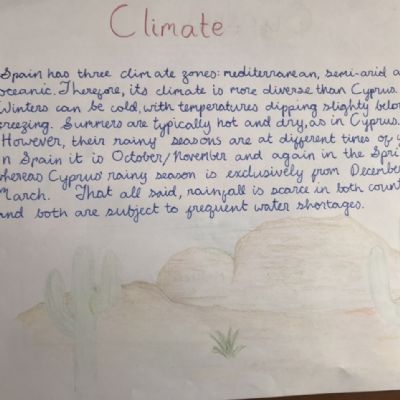 Climate
Spain has three climate zones: mediterranean, semi-arid a
oceanic. Therefore, its climate is more diverse than Cyprus.
Winters can be cold, with temperatures dipping slighty belo
freezing. Summers are typically hot and dry, as in Cyprus.
However, their rainy seasons are at different times of y
In Spain it is October/November and again in the Spri
whereas Cyprus' rainy season is exclusively from December
March. That all said, rainfall is scarce in both count
and both are subject to frequent water shortages.